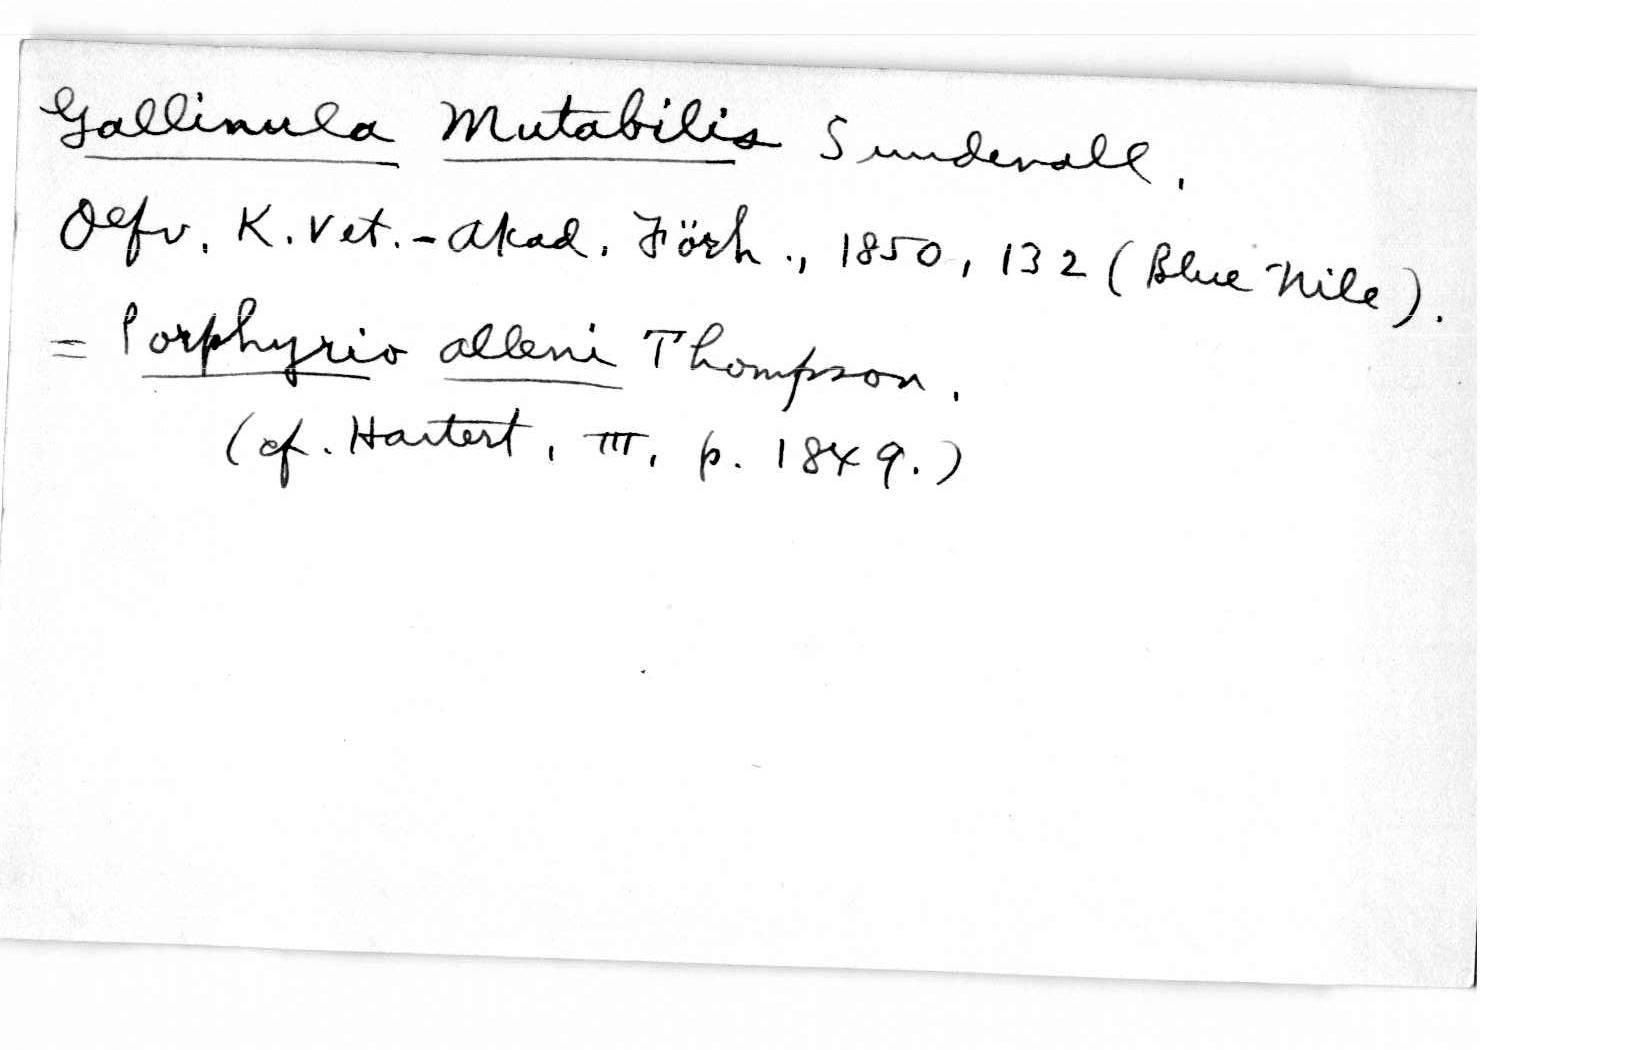 Gallinula Mutabilis Sundevall,
Oefv. K. Vet.-Akad. Förh., 1850, 132 (Blue Nile).
= Porphyrio alleni Thompson.
(cf. Hartert, III, p. 1849.)